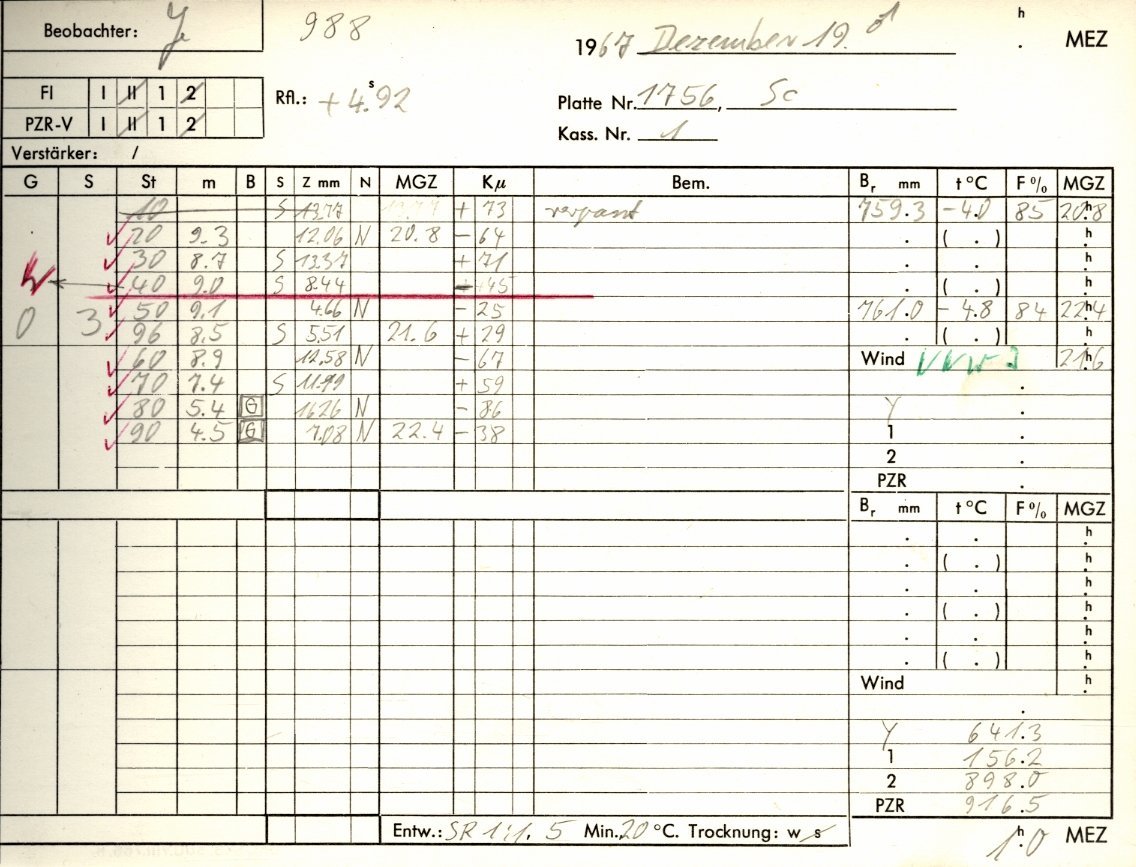 Beobachter: 988 1967 Dezember 19. d h . MEZ
FI I II 1 2 Rfl.: + 4.s92 Platte Nr. 1756, Sc
PZR-V I II 1 2 Kass. Nr. 1
Verstärker: /
G S St m B S Z mm N MGZ Kμ Bem. Br mm t °C F % MGZ
10 S 13.77 + 73 verpasst 759.3 -4.0 85 20h8
20 9.3 12.06 N 20.8 - 64 . ( . ) h
30 8.7 S 13.37 + 71 . . h
40 9.0 S 8.44 45 . ( . ) h
0 3 50 9.1 4.66 N - 25 761.0 - 4.8 84 22h4
96 8.5 S 5.51 21.6 + 29 . ( . ) h
60 8.9 12.58 N - 67 Wind 21h6
70 7.4 S 11.99 + 59 .
80 5.4 G 16.26 N - 86 Y .
90 4.5 G 7.08 N 22.4 - 38 1 .
2 .
PZR .
Br mm t °C F % MGZ
. . h
. ( . ) h
. . h
. ( . ) h
. . h
. ( . ) h
Wind h
.
Y 641.3
1 156.2
2 898.0
PZR 916.5
Entw.: SR 1:1. 5 Min. 20 °C. Trocknung: w s 1h0 MEZ